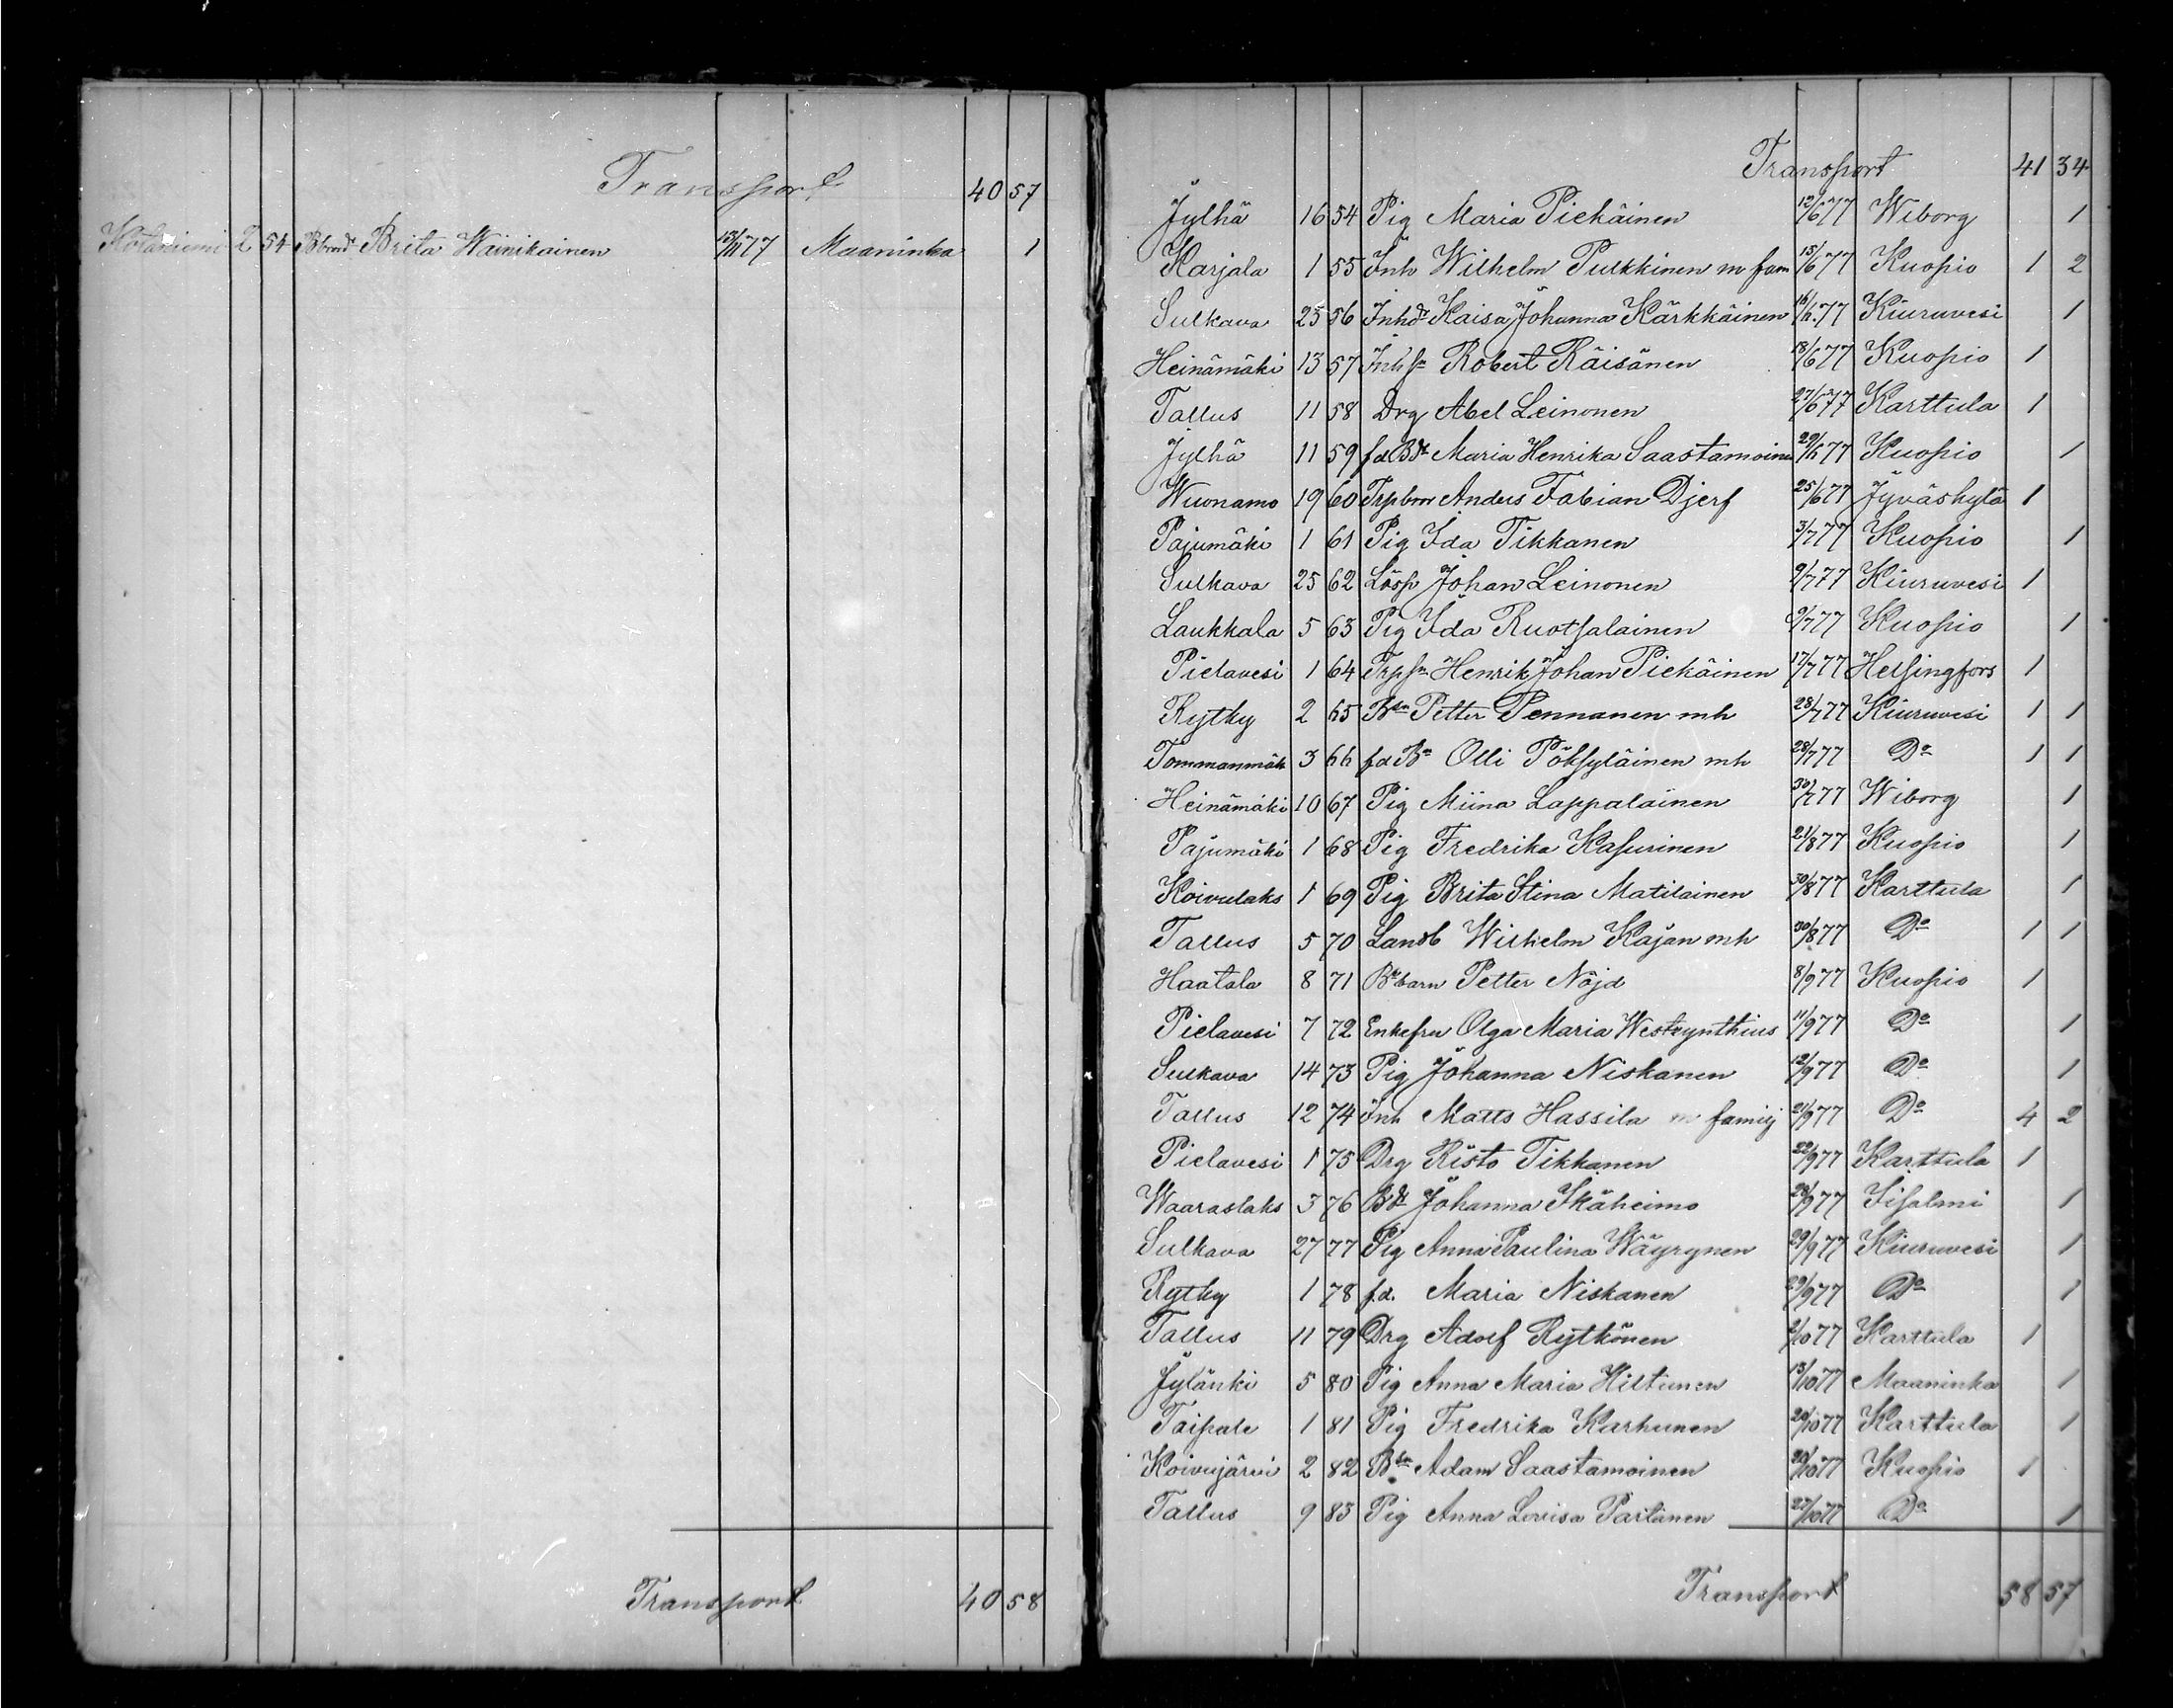 Transport 40 57
Kotaniemi 2 54 Brita Wainikainen 13/11 77 Maaninka 1
Transport 40 58
Transport 41 34
Jylhä 16 54 Pig Maria Piekäinen 12/6 77 Wiborg 1
Karjala 1 55 Inh Wilhelm Pulkkinen m fam 15/6 77 Kuopio 1 2
Sulkava 25 56 Inhdr Kaisa Johanna Kärkkäinen 16/6 77 Kiuruvesi 1
Heinämäki 13 57 Inhsn Robert Räisänen 18/6 77 Kuopio 1
Tallus 11 58 Drg Abel Leinonen 27/6 77 Karttula 1
Jylhä 11 59 fd Bdr Maria Henrika Saastamoinen 29/6 77 Kuopio 1
Wuonamo 19 60 Anders Fabian Djerf 25/6 77 Jyväskylä 1
Pajumäki 1 61 Pig Ida Tikkanen 3/7 77 Kuopio 1
Sulkava 25 62 Lösp Johan Leinonen 9/7 77 Kiuruvesi 1
Laukkala 5 63 Pig Ida Ruotsalainen 9/7 77 Kuopio 1
Pielavesi 1 64 Trpsn Henrik Johan Piekäinen 17/7 77 Helsingfors 1
Rytky 2 65 Bsn Petter Pennanen mh 28/7 77 Kiuruvesi 1 1
Tommanmäk 3 66 fd Bn Olli Pöksyläinen mh 28/7 77 Do 1 1
Heinämäki 10 67 Pig Miina Lappalainen 30/7 77 Wiborg 1
Pajumäki 1 68 Pig Fredrika Kasurinen 21/8 77 Kuopio 1
Koivulaks 1 69 Pig Brita Stina Matilainen 30/8 77 Karttula 1
Tallus 5 70 Landb Wilhelm Kajan mh 30/8 77 Do 1 1
Haatala 8 71 barn Petter Nöjd 8/9 77 Kuopio 1
Pielavesi 7 72 Enkefru Olga Maria Westzynthius 11/9 77 Do 1
Sulkava 14 73 Pig Johanna Niskanen 12/9 77 Do 1
Tallus 12 74 Inh Matts Hassila m familj 21/9 77 Do 4 2
Pielavesi 1 75 Drg Risto Tikkanen 22/9 77 Karttula 1
Waaraslaks 3 76 Bdr Johanna Ikäheimo 28/9 77 Iisalmi 1
Sulkava 27 77 Pig Anna Paulina Wäyrynen 29/9 77 Kiuruvesi 1
Rytky 1 78 fd. Maria Niskanen 29/9 77 Do 1
Tallus 11 79 Drg Adolf Rytkönen 2/10 77 Karttula 1
Jylänki 5 80 Pig Anna Maria Hiltunen 13/10 77 Maaninka 1
Taipale 1 81 Pig Fredrika Karhunen 20/10 77 Karttula 1
Koivujärvi 2 82 Bsn Adam Saastamoinen 20/10 77 Kuopio 1
Tallus 9 83 Pig Anna Lovisa Partanen 27/10 77 Do 1
Transport 58 57